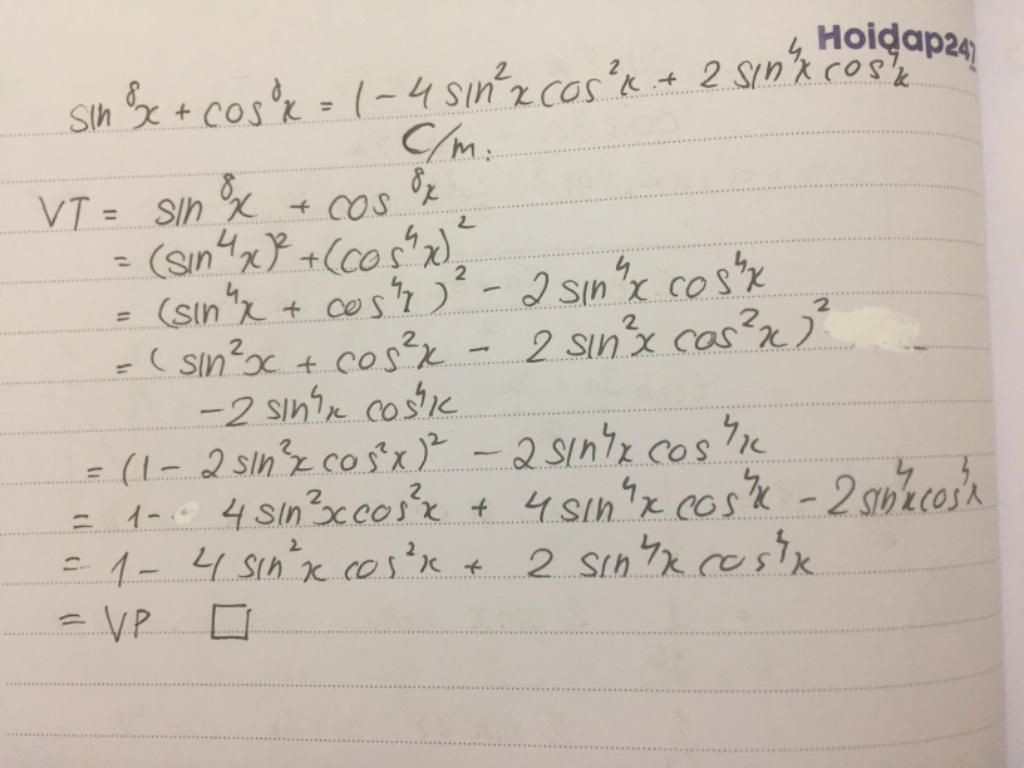 Hoidap247
sin⁸x + cos⁸x = 1 - 4 sin²x cos²x + 2 sin⁴x cos⁴x
C/m:
VT = sin⁸x + cos⁸x
= (sin⁴x)² + (cos⁴x)²
= (sin⁴x + cos⁴x)² - 2 sin⁴x cos⁴x
= (sin²x + cos²x - 2 sin²x cos²x)²
- 2 sin⁴x cos⁴x
= (1 - 2 sin²x cos²x)² - 2 sin⁴x cos⁴x
= 1 - 4 sin²x cos²x + 4 sin⁴x cos⁴x - 2 sin⁴x cos⁴x
= 1 - 4 sin²x cos²x + 2 sin⁴x cos⁴x
= VP □